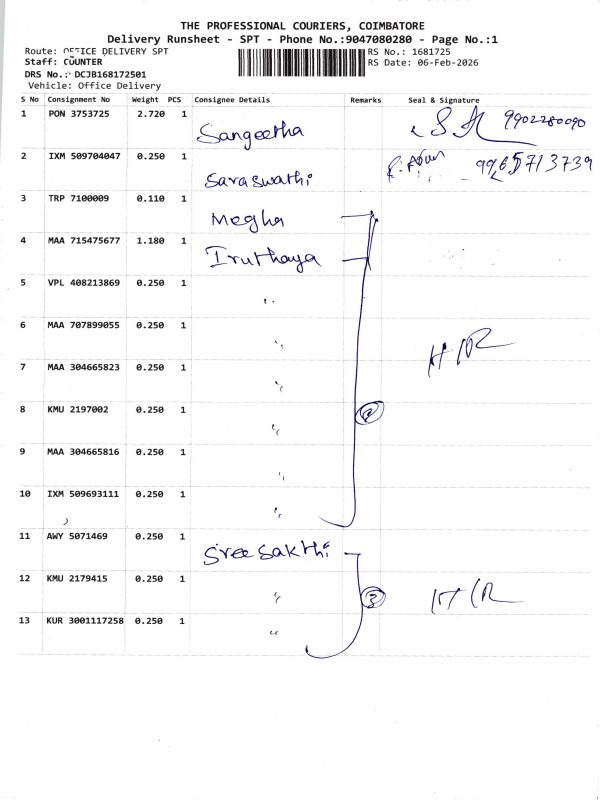 THE PROFESSIONAL COURIERS, COIMBATORE
Delivery Runsheet - SPT - Phone No.:9047080280 - Page No.:1
Route: OFFICE DELIVERY SPT
RS No.: 1681725
Staff: COUNTER
RS Date: 06-Feb-2026
DRS No.: DCJB168172501
Vehicle: Office Delivery
S No Consignment No Weight PCS Consignee Details Remarks Seal & Signature
1 PON 3753725 2.720 1 Sangeetha 9902280090
2 IXM 509704047 0.250 1 Saraswathi 9965713739
3 TRP 7100009 0.110 1 Megha
4 MAA 715475677 1.180 1 Iruthaya
5 VPL 408213869 0.250 1 "
6 MAA 707899055 0.250 1 "
7 MAA 304665823 0.250 1 "
8 KMU 2197002 0.250 1 "
9 MAA 304665816 0.250 1 "
10 IXM 509693111 0.250 1 "
11 AWY 5071469 0.250 1 Sree Sakthi
12 KMU 2179415 0.250 1 " 3
13 KUR 3001117258 0.250 1 "